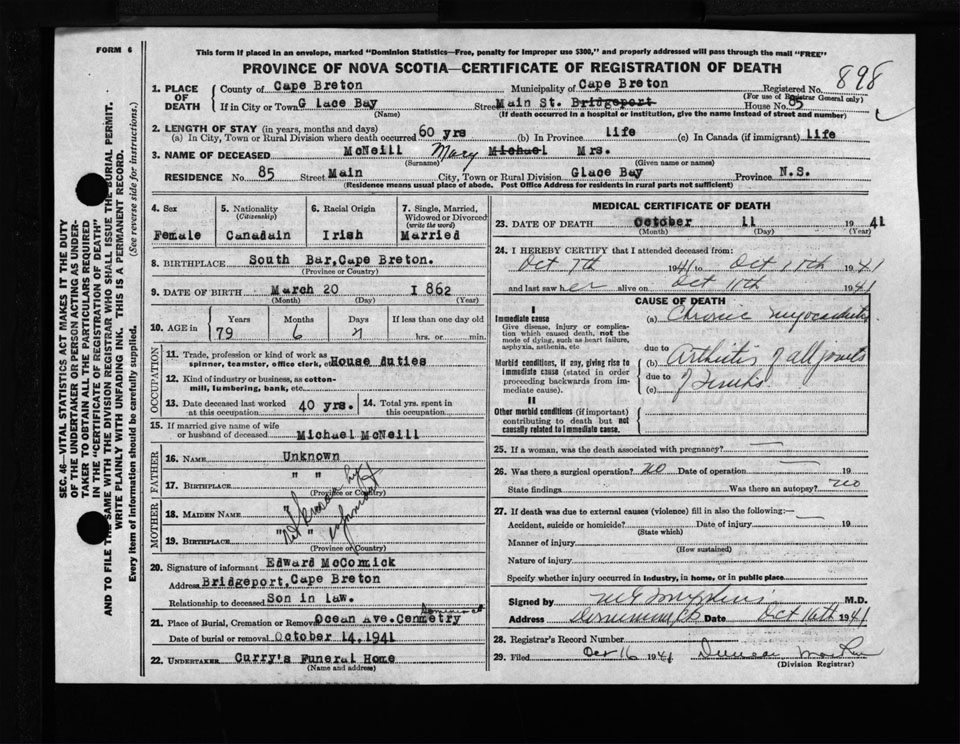 FORM 6
This form if placed in an envelope, marked "Dominion Statistics—Free, penalty for improper use $300," and properly addressed will pass through the mail "FREE"
PROVINCE OF NOVA SCOTIA—CERTIFICATE OF REGISTRATION OF DEATH
898
1. PLACE OF DEATH County of Cape Breton Municipality of Cape Breton Registered No.
(For use of Registrar General only)
If in City or Town G lace Bay Street Main St. Bridgeport House No. 85
(Name) (If death occurred in a hospital or institution, give the name instead of street and number)
2. LENGTH OF STAY (in years, months and days)
(a) In City, Town or Rural Division where death occurred 60 yrs (b) In Province life (c) In Canada (if immigrant) life
3. NAME OF DECEASED McNeill Mary Michael Mrs.
(Surname) (Given name or names)
RESIDENCE No. 85 Street Main City, Town or Rural Division Glace Bay Province N.S.
(Residence means usual place of abode. Post Office Address for residents in rural parts not sufficient)
4. Sex Female
5. Nationality (Citizenship) Canadain
6. Racial Origin Irish
7. Single, Married, Widowed or Divorced (write the word) Married
8. BIRTHPLACE South Bar,Cape Breton.
(Province or Country)
9. DATE OF BIRTH March 20 I 862
(Month) (Day) (Year)
10. AGE in Years 79 Months 6 Days If less than one day old hrs. or min.
OCCUPATION
11. Trade, profession or kind of work as spinner, teamster, office clerk, etc. House duties
12. Kind of industry or business, as cotton-mill, lumbering, bank, etc.
13. Date deceased last worked at this occupation 40 yrs. 14. Total yrs. spent in this occupation
15. If married give name of wife or husband of deceased Michael McNeill
FATHER
16. NAME Unknown
17. BIRTHPLACE " "
(Province or Country)
MOTHER
18. MAIDEN NAME
19. BIRTHPLACE " "
(Province or Country)
Not known by informant
20. Signature of informant Edward McCormick
Address Bridgeport,Cape Breton
Relationship to deceased Son in law.
21. Place of Burial, Cremation or Removal Ocean Ave.Cemmetry
Date of burial or removal October 14,1941
22. UNDERTAKER Curry's Funeral Home
(Name and address)
MEDICAL CERTIFICATE OF DEATH
23. DATE OF DEATH October 11 1941
(Month) (Day) (Year)
24. I HEREBY CERTIFY that I attended deceased from:
Oct 7th 1941 to Oct 11th 1941
and last saw her alive on Oct 11th 1941
CAUSE OF DEATH
I
Immediate cause
Give disease, injury or complication which caused death, not the mode of dying, such as heart failure, asphyxia, asthenia, etc
(a) Chronic myocarditis
due to
Morbid conditions, if any, giving rise to immediate cause (stated in order proceeding backwards from immediate cause).
(b) Arthritis of all joints
due to
(c)
II
Other morbid conditions (if important) contributing to death but not causally related to immediate cause.
25. If a woman, was the death associated with pregnancy?
26. Was there a surgical operation? no Date of operation 19
State findings Was there an autopsy? no
27. If death was due to external causes (violence) fill in also the following:—
Accident, suicide or homicide? Date of injury 19
(State which)
Manner of injury
(How sustained)
Nature of injury
Specify whether injury occurred in industry, in home, or in public place
Signed by M.D.
Address Dominion CB Date Oct 16th 1941
28. Registrar's Record Number
29. Filed Oct 16 1941 Duncan
(Division Registrar)
SEC. 46—VITAL STATISTICS ACT MAKES IT THE DUTY OF THE UNDERTAKER OR PERSON ACTING AS UNDERTAKER TO OBTAIN ALL THE PARTICULARS REQUIRED IN THE "CERTIFICATE OF REGISTRATION OF DEATH" AND TO FILE THE SAME WITH THE DIVISION REGISTRAR WHO SHALL ISSUE THE BURIAL PERMIT.
WRITE PLAINLY WITH UNFADING INK. THIS IS A PERMANENT RECORD.
Every item of information should be carefully supplied. (See reverse side for instructions.)